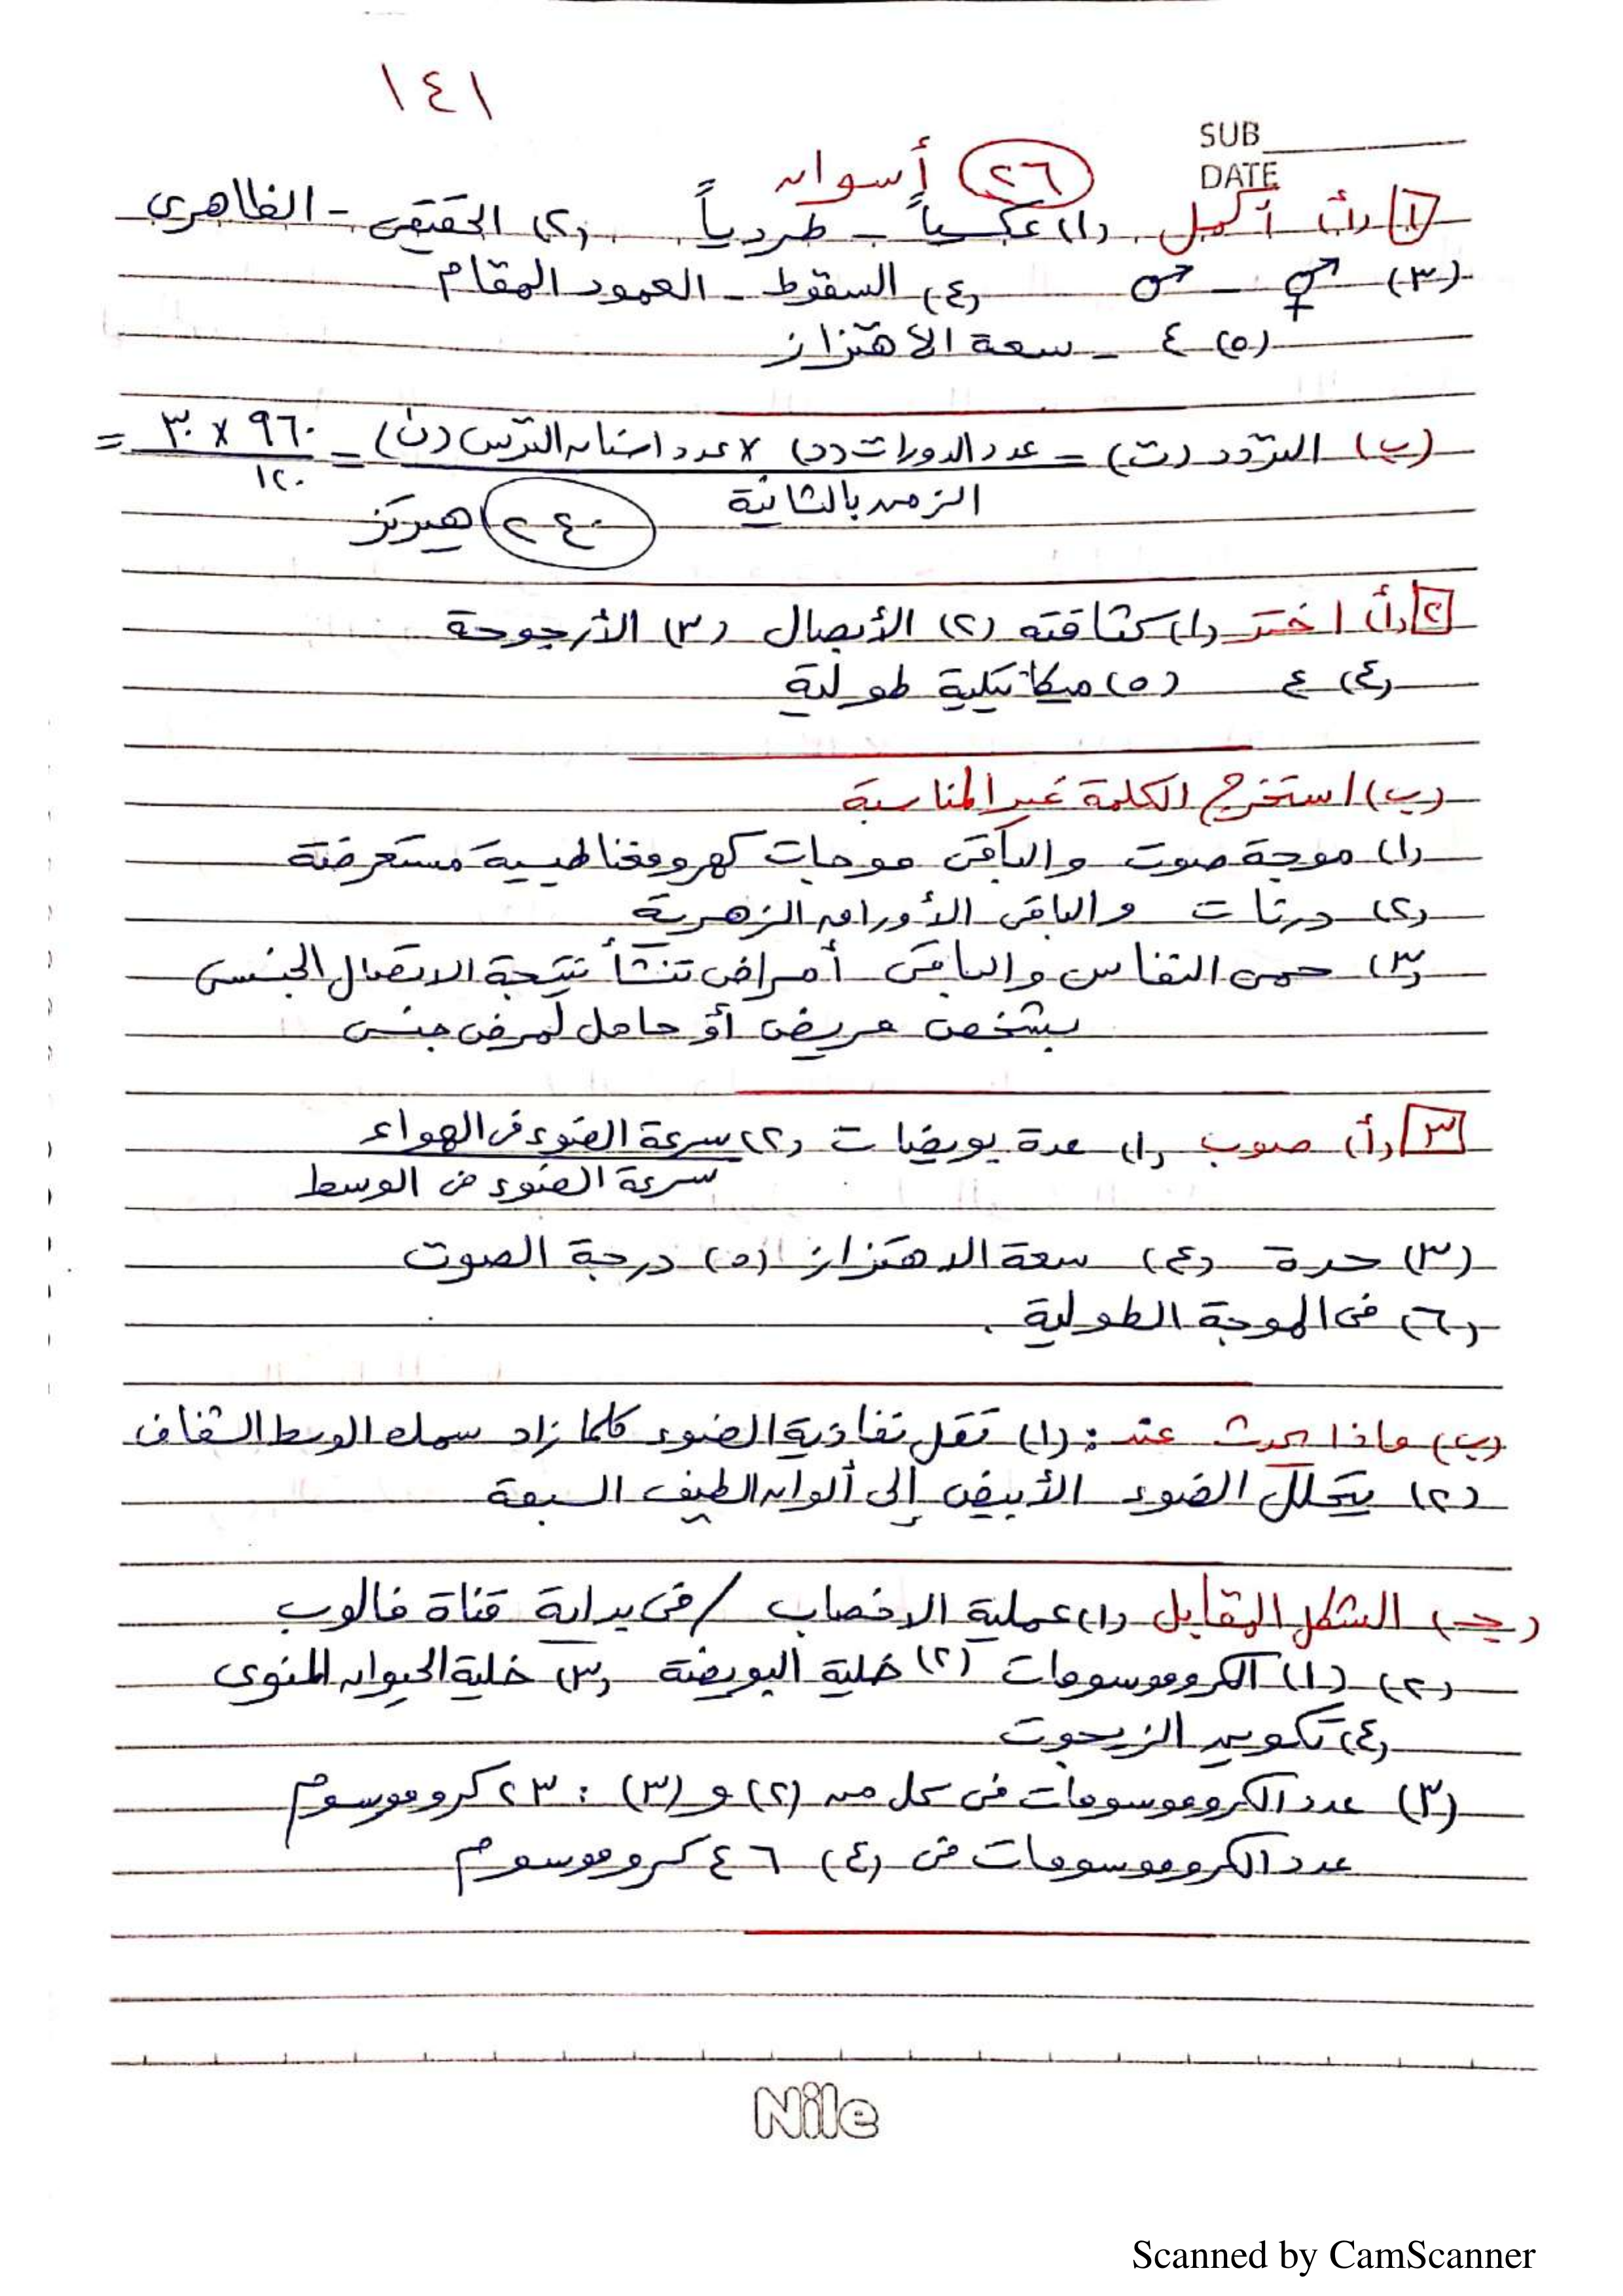 ١٤١
SUB
DATE
٢٦ أسوان
١ (أ) أكمل (١) عكسياً - طردياً (٢) الحقيقى - الظاهرى
(٣) ⚥ - ♂ (٤) السقوط - العمود المقام
(٥) ٤ - سعة الاهتزاز
(ب) التردد (ت) = عدد الدورات (د) × عدد أسنان الترس (ن) = ٩٦٠ × ٣٠ =
الزمن بالثانية ١٢٠
٢٤٠ هيرتز
٢ (أ) اختر (١) كثافته (٢) الأبصال (٣) الأرجوحة
(٤) ع (٥) ميكانيكية طولية
(ب) استخرج الكلمة غير المناسبة
(١) موجة صوت والباقى موجات كهرومغناطيسية مستعرضة
(٢) درنات والباقى الأوراق الزهرية
(٣) حمى النفاس والباقى أمراض تنشأ نتيجة الاتصال الجنسى
بشخص مريض أو حامل لمرض جنسى
٣ (أ) صوب (١) عدة بويضات (٢) سرعة الضوء فى الهواء
سرعة الضوء فى الوسط
(٣) حدة (٤) سعة الاهتزاز (٥) درجة الصوت
(٦) فى الموجة الطولية .
(ب) ماذا يحدث عند : (١) تقل نفاذية الضوء كلما زاد سمك الوسط الشفاف
(٢) يتحلل الضوء الأبيض إلى ألوان الطيف السبعة
(جـ) الشكل المقابل (١) عملية الاخصاب / فى بداية قناة فالوب
(٢) (١) الكروموسومات (٢) خلية البويضة (٣) خلية الحيوان المنوى
(٤) تكوين الزيجوت
(٣) عدد الكروموسومات فى كل من (٢) و (٣) : ٢٣ كروموسوم
عدد الكروموسومات فى (٤) ٤٦ كروموسوم
Nile
Scanned by CamScanner